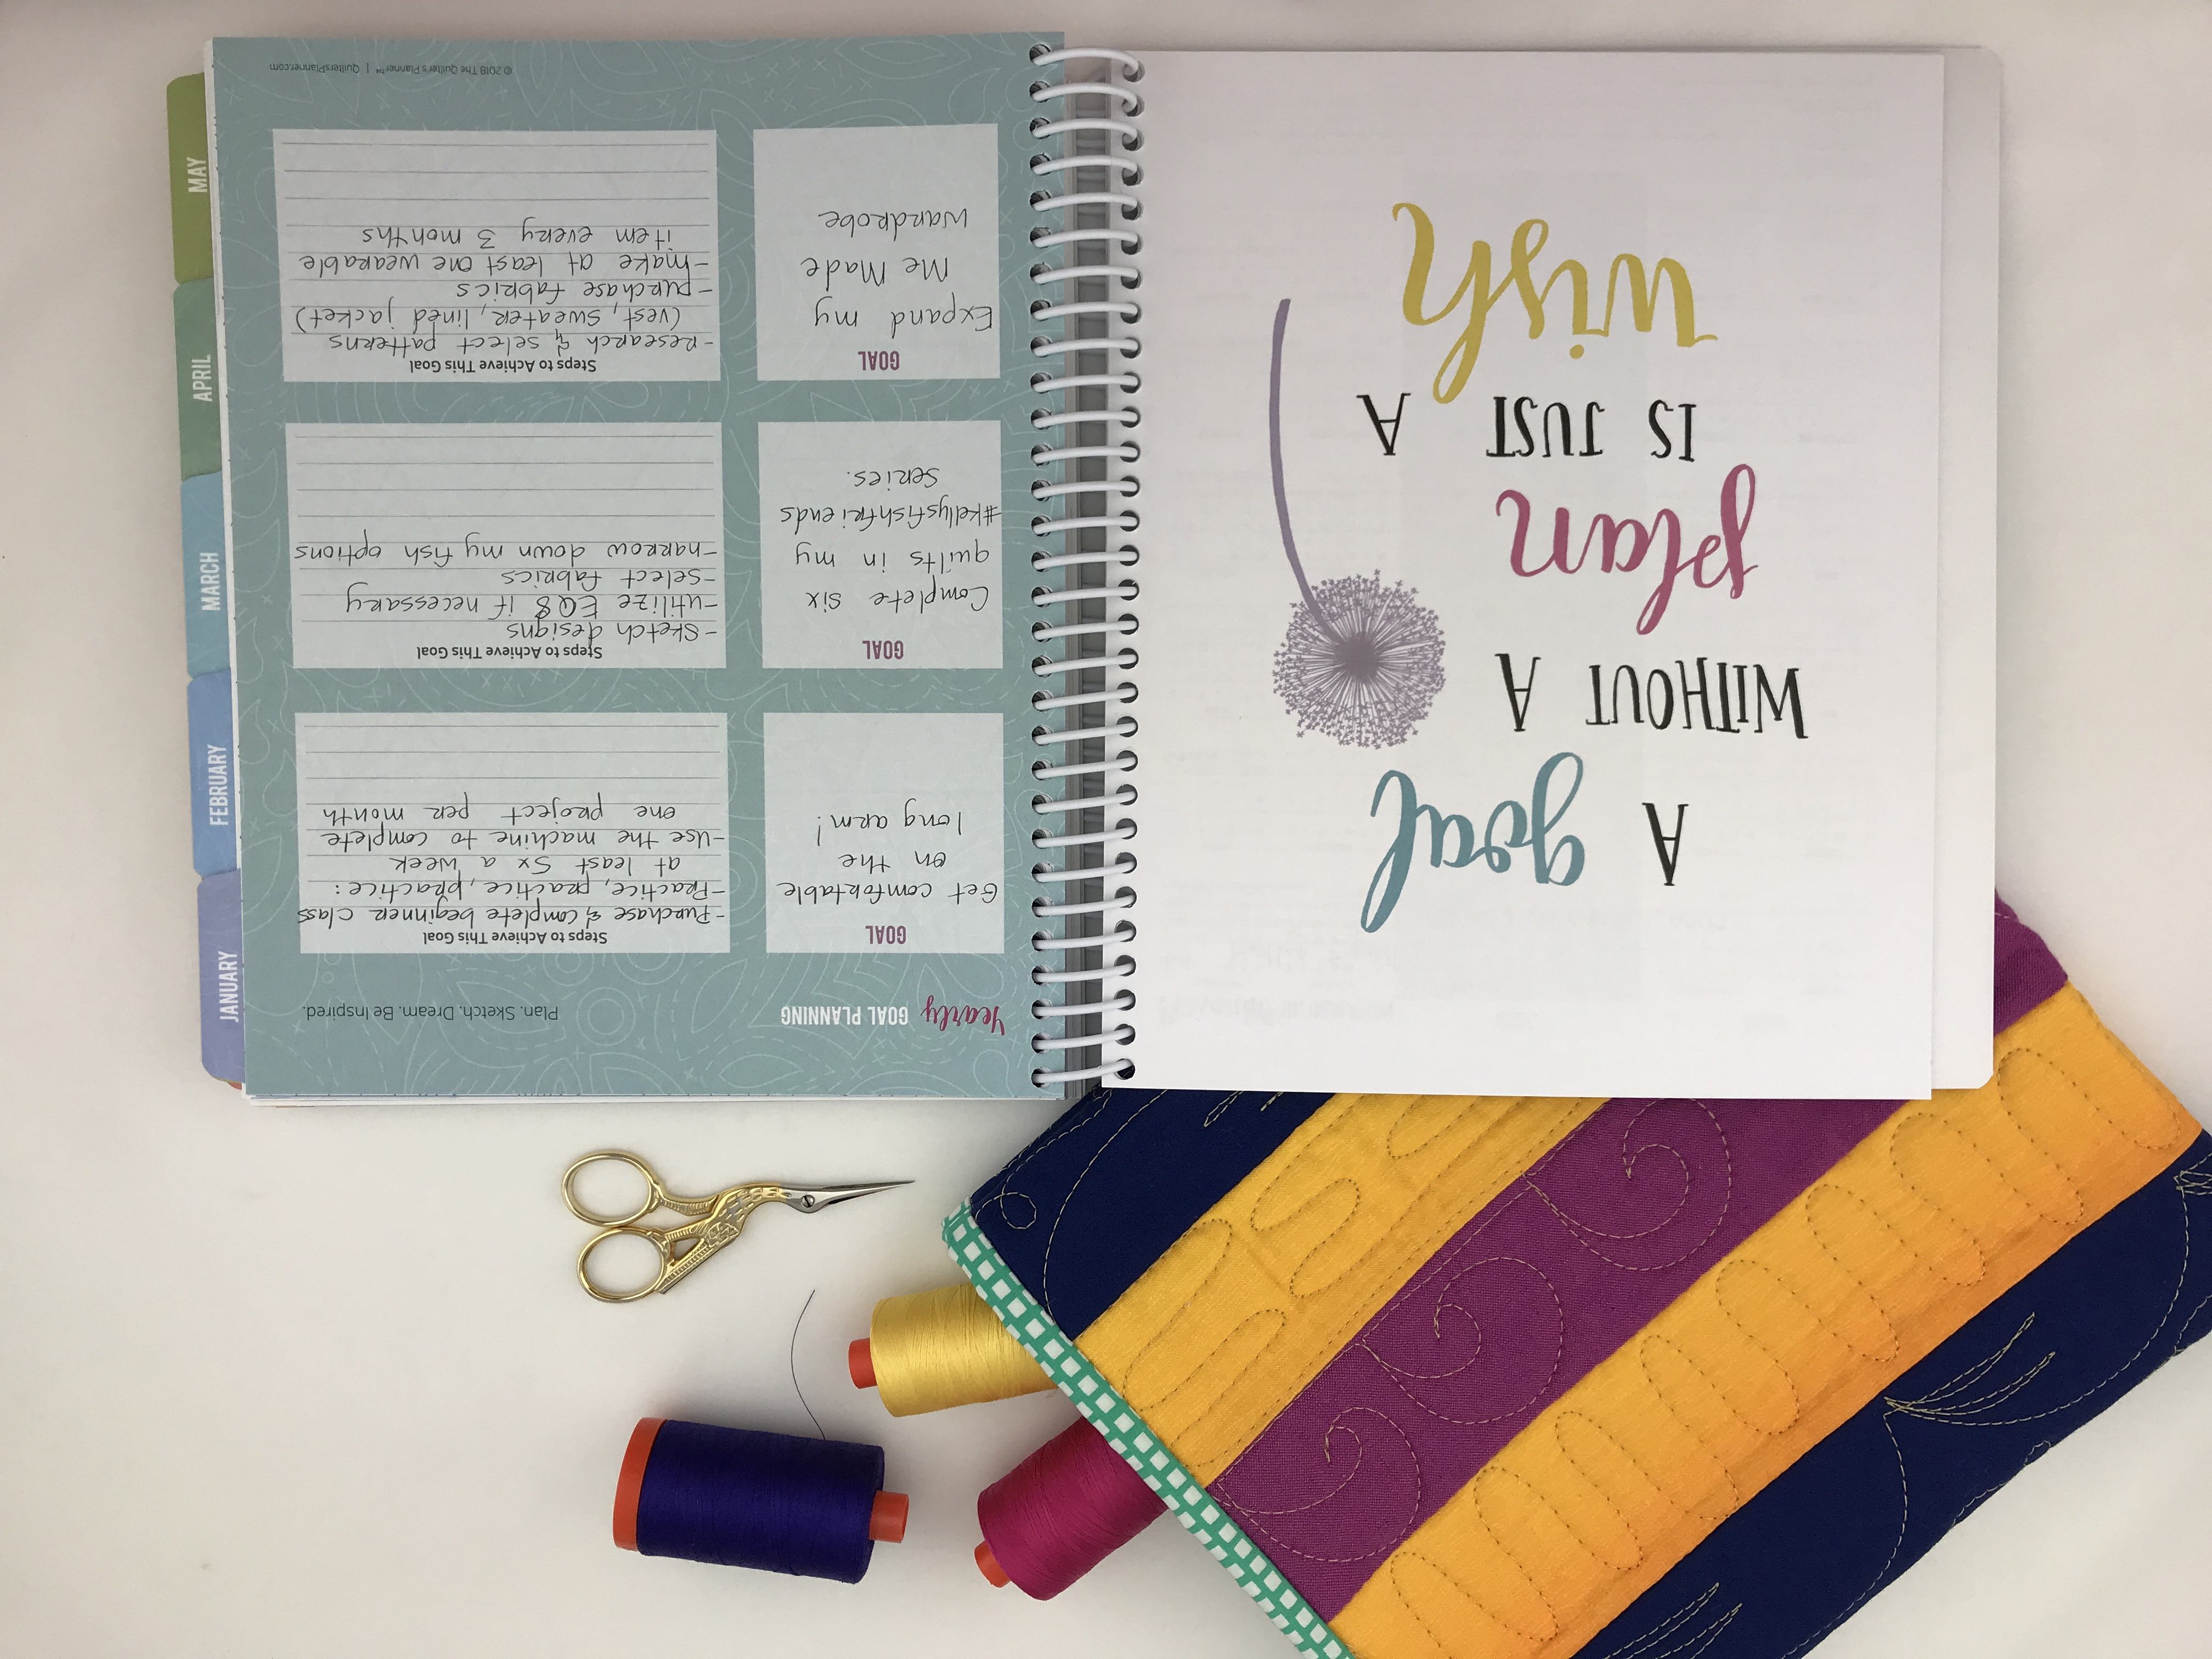 A goal
WITHOUT A
plan
IS JUST A
wish
Yearly GOAL PLANNING
Plan. Sketch. Dream. Be Inspired.
GOAL
Get comfortable
on the
long arm!
Steps to Achieve This Goal
-Purchase & complete beginner class
-Practice, practice, practice:
at least 5x a week
-Use the machine to complete
one project per month
GOAL
Complete six
quilts in my
#kellysfishfriends
series.
Steps to Achieve This Goal
-sketch designs
-utilize EQ8 if necessary
-select fabrics
-narrow down my fish options
GOAL
Expand my
Me Made
Wardrobe
Steps to Achieve This Goal
-research & select patterns
(vest, sweater, lined jacket)
-purchase fabrics
-make at least one wearable
item every 3 months
© 2018 The Quilter's Planner™ | QuiltersPlanner.com
JANUARY
FEBRUARY
MARCH
APRIL
MAY